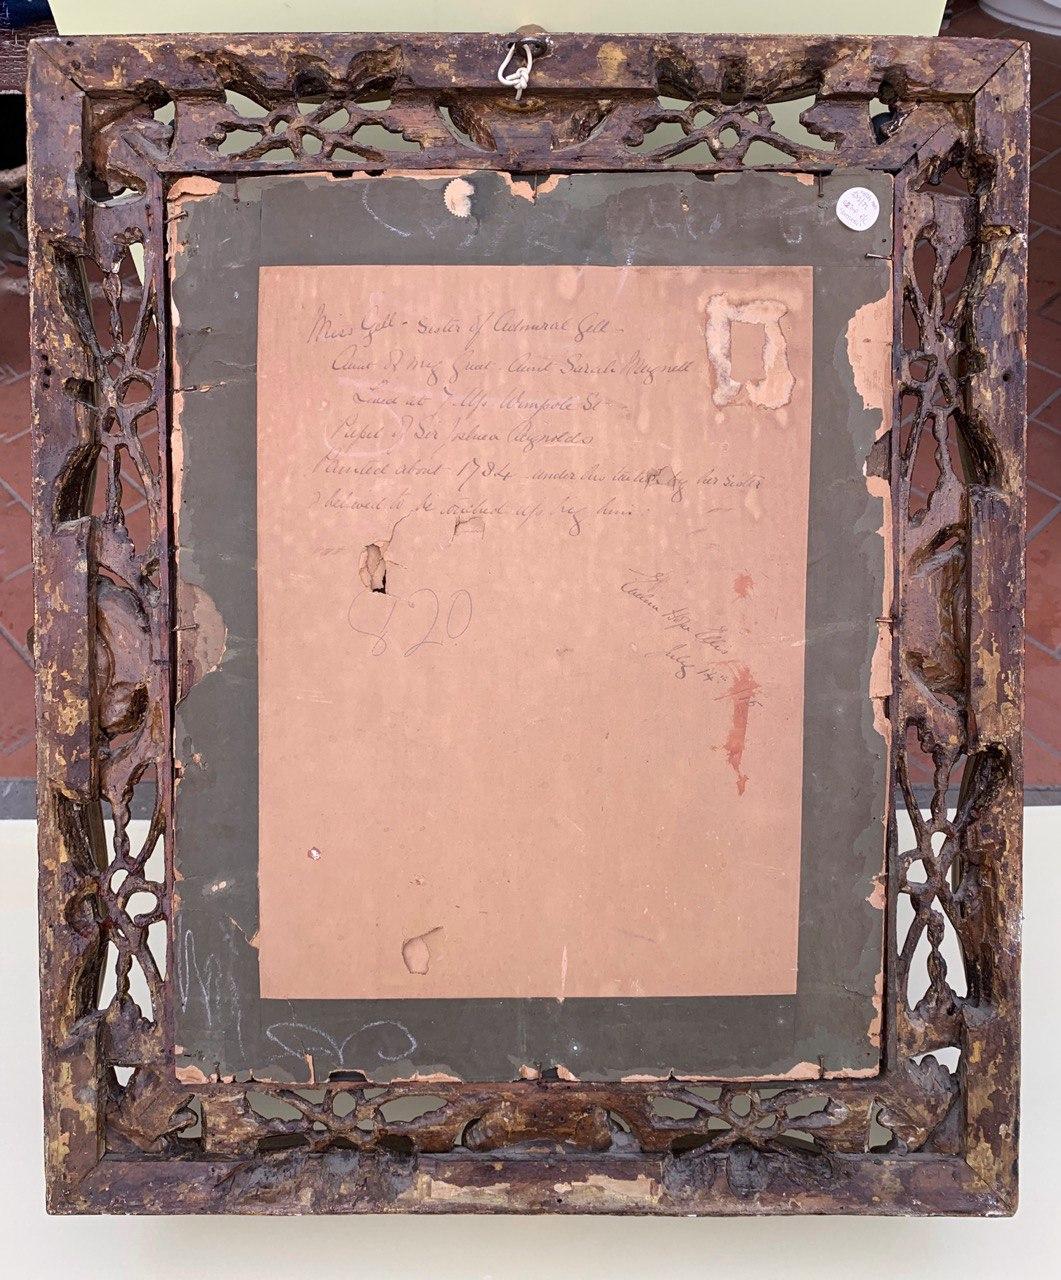 Miss Gell - Sister of Admiral Gell -
Aunt of my Great Aunt Sarah Meynell
Lived at 7 Up. Wimpole St -
Pupil of Sir Joshua Reynolds
Painted about 1784 under his by her sister
& believed to be touched up by him.
820
Hope Ellis
July 14th